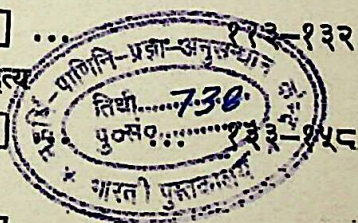 ... ११३-१३२
त्य
पाणिनि-प्रज्ञा-अनुसन्धान
तिथी........738
पु०सं०........ १३३-१५८
भारती पुस्तकालय